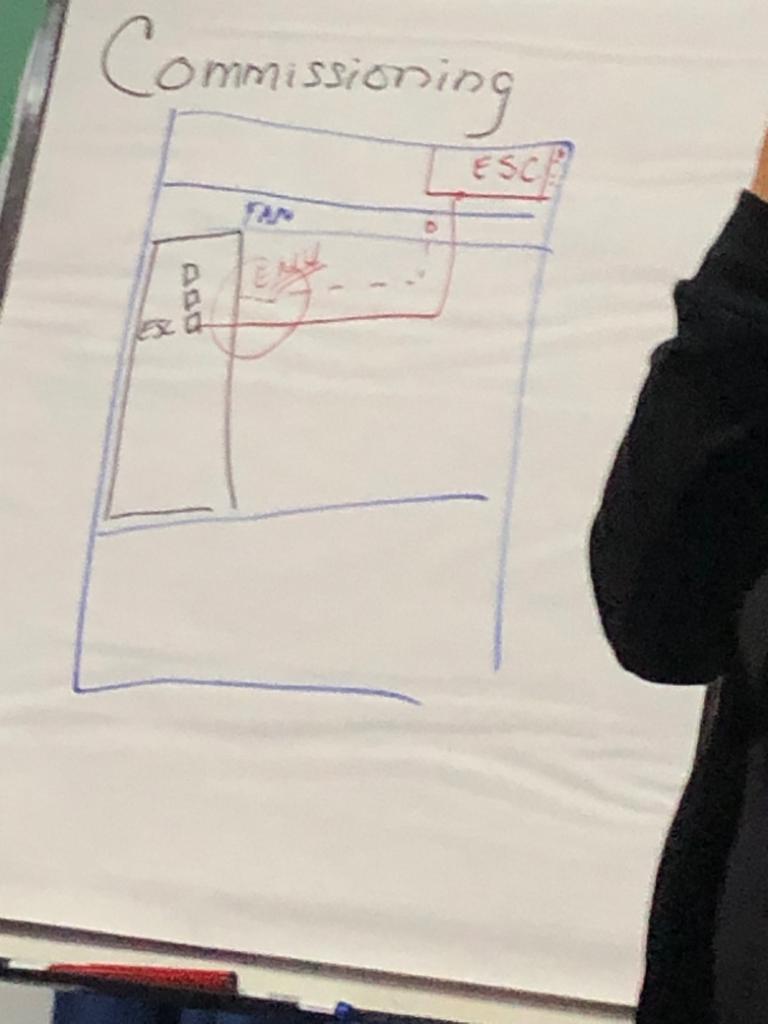 Commissioning
ESC
FAN
ESC